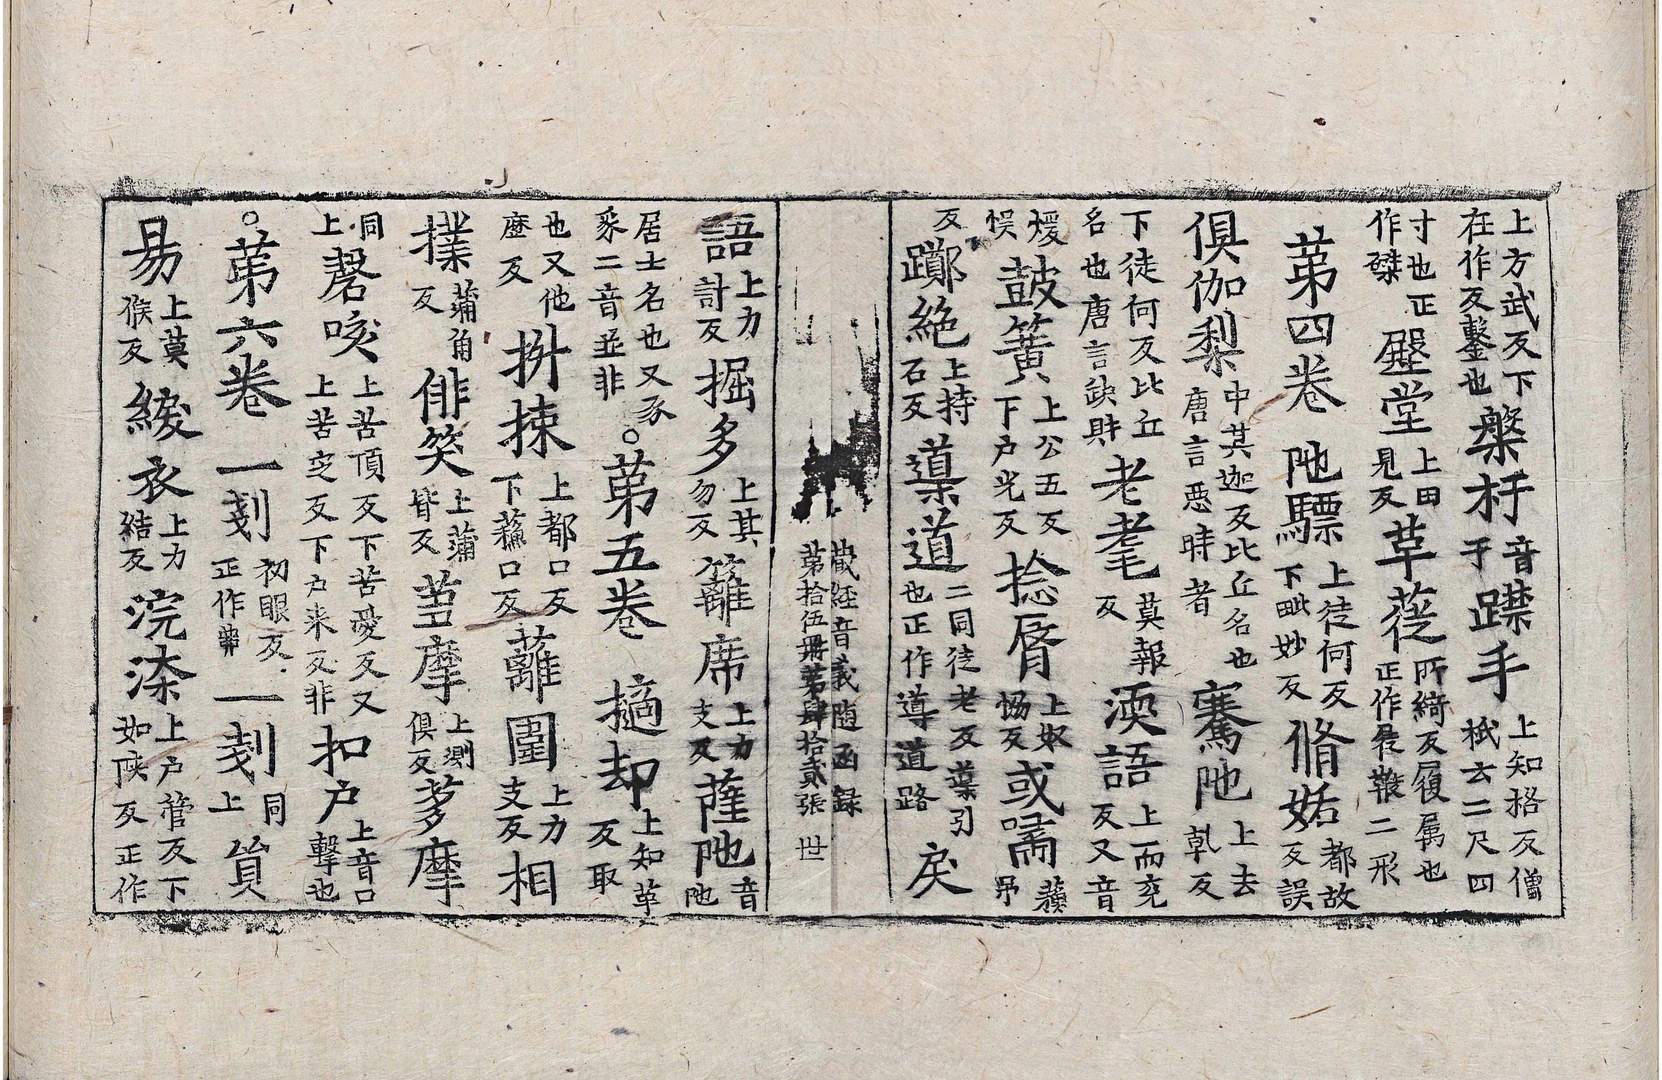 上方武反下在作反鑿也槃杅音于躁手上知格反僧祇云二尺四
寸也正作磔壂堂上田見反草蓰所綺反履属也正作屣鞁二形
第四卷 阤驃上徒何反下毗妙反脩妬都故反誤
俱伽梨中其迦反比丘名也唐言惡時者騫阤上去乹反
下徒何反比丘名也唐言鈌財老耄莫報反渜語上而兖反又音
煗悮皷簧上公五反下户光反捻脣上奴恊反或嚅
反躑絶上持石反導道二同徒老反導引也正作導道路戾
藏經音義随函録
第拾伍冊第肆拾貳張 世
語上力計反掘多上其勿反籬席上力支反薩阤音阤
居士名也又豕豕二音並非○第五卷 擿却上知革反取
也又他歷反抖揀上都口反下蘓口反蘺圍上力支反相
撲蒲角反俳笑上蒲皆反葍摩上測俱反蒭摩
同上磬咳上苦頂反下苦愛反又上苦定反下户来反非扣户上音口擊也
○第六卷 一刬初眼反正作剗一刬同上貿
易上莫候反綟衣上力結反浣染上户管反下如陝反正作